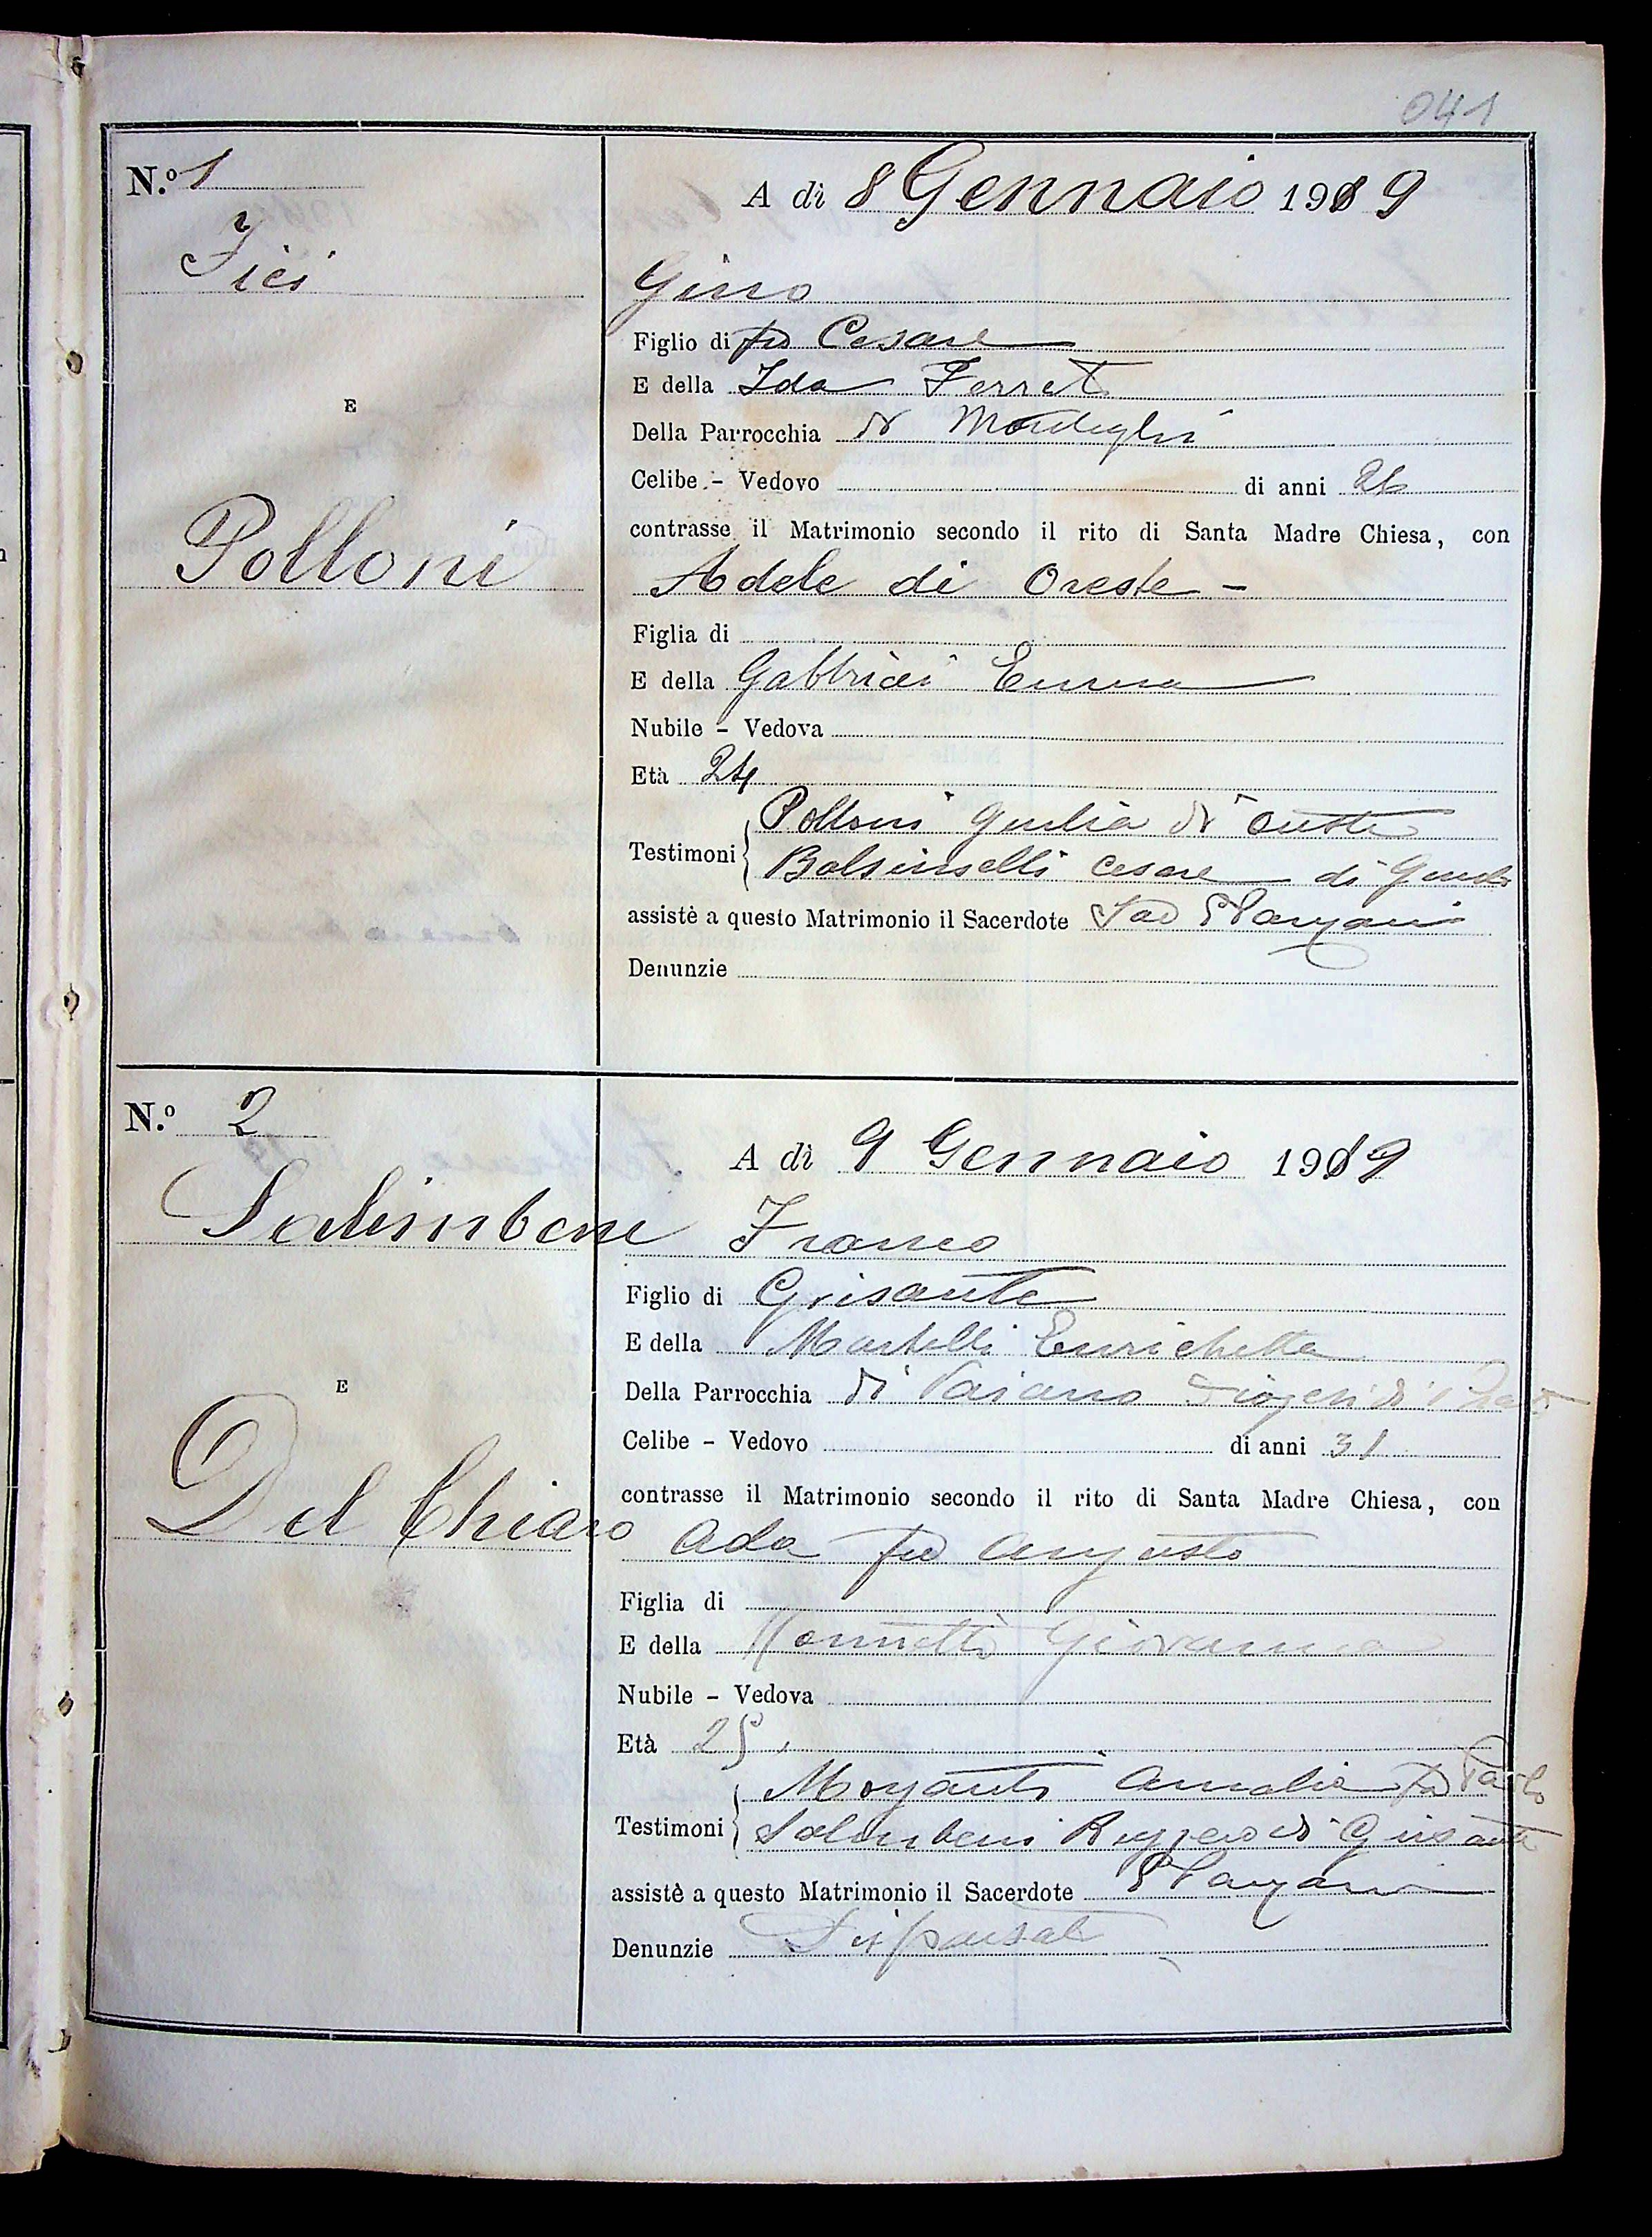 041
N.º 1
A dì 8 Gennaio 1919
Fici
Gino
Figlio di fu Cesare
E della Ida Ferret
E
Della Parrocchia di
Celibe - Vedovo di anni 26
contrasse il Matrimonio secondo il rito di Santa Madre Chiesa, con
Polloni
Adele di Oreste -
Figlia di
E della Gabbrici Emma
Nubile - Vedova
Età 24
Polloni Giulia di Oreste
Testimoni
Balsinelli Cesare di
assistè a questo Matrimonio il Sacerdote Sac
Denunzie
N.º 2
A dì 9 Gennaio 1919
Salimbene Franco
Figlio di Grisante
E della Martelli Enrichetta
E
Della Parrocchia di Vaiano
Celibe - Vedovo di anni 31
contrasse il Matrimonio secondo il rito di Santa Madre Chiesa, con
Del Chiaro Ada fu Augusto
Figlia di
E della Giovanna
Nubile - Vedova
Età 25
Amalia fu Paolo
Testimoni
Salimbeni Ruggero di Grisante
assistè a questo Matrimonio il Sacerdote
Denunzie